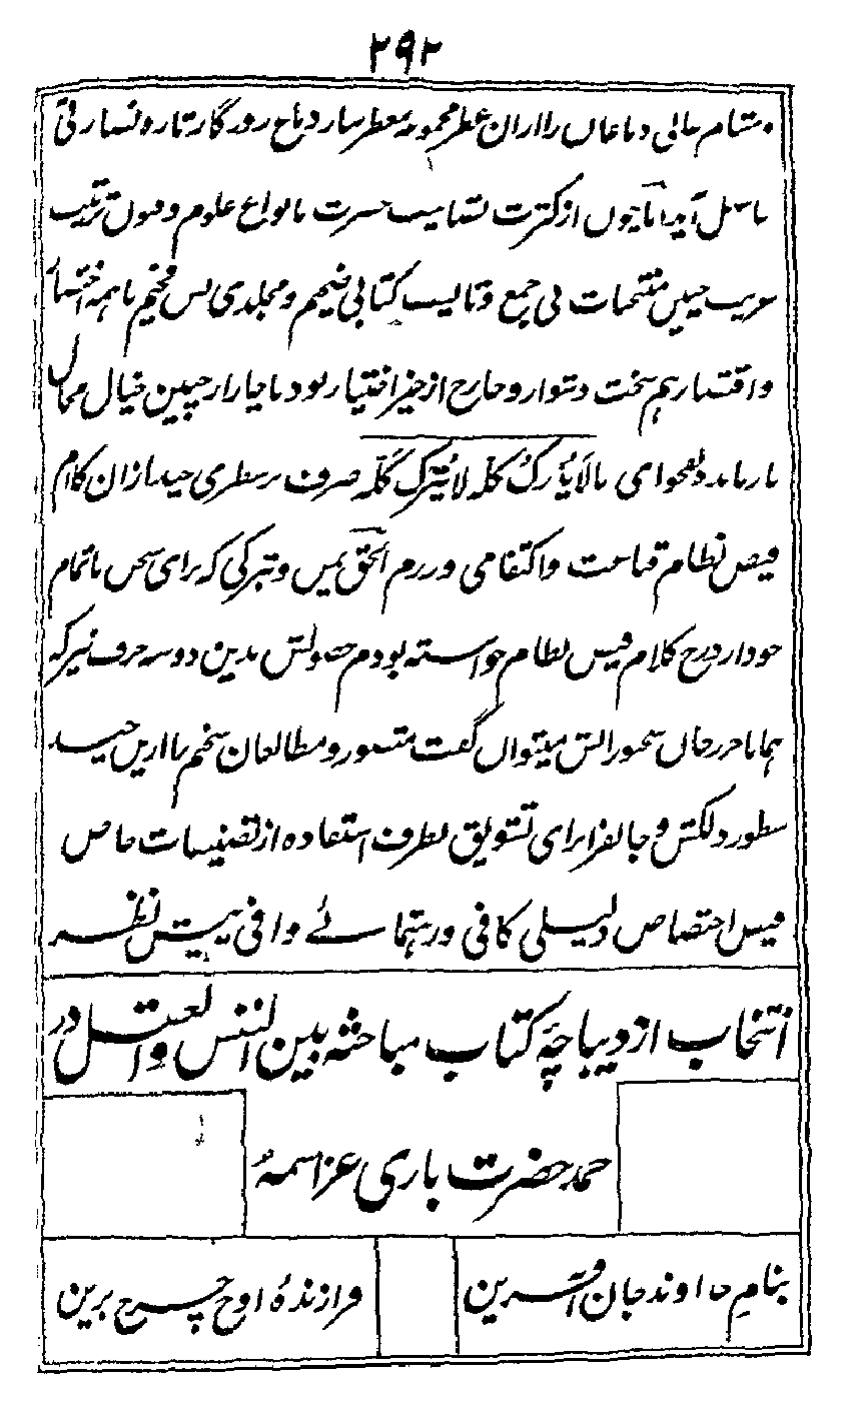 ۲۹۲
مشام عالی دماغان را ازان عطر مجموعه معطر سازد دماغ روزگار تازه
آید اما چون از کثرت تصانیف حضرت بانواع علوم و فنون ترتیب
چنین منتخبات بی جمع و تالیف کتابی ضخیم و مجلدی بس فخیم باهمه اختصا
و اقتصار هم سخت دشوار و خارج از حیز اختیار بود ناچار از چنین خیال محال
باز مانده بفحوای مالا یُدرک کلّه لا یُترک کلّه صرف بر سطری چند ازان کلام
فیض نظام قناعت و اکتفا می ورزم الحق یمن و تبرکی که برای سخن ناتمام
خود از درج کلام فیض نظام خواسته بودم حصولش بدین دو سه حرف نیز که
همانا حرز جان سخنورانش میتوان گفت متصور و مطالعان سخنم را ازین چند
سطور دلکش و جانفزا برای تشویق بطرف استفاده از تصنیفات خاص
فیض اختصاص دلیلی کافی و رهنمائے وافی پیش نظر
انتخاب از دیباچۂ کتاب مباحثہ بین النفس والعقل در
حمد حضرت باری عز اسمهٗ
بنامِ خداوند جان آفرین
فرازندۂ اوج چرخ برین